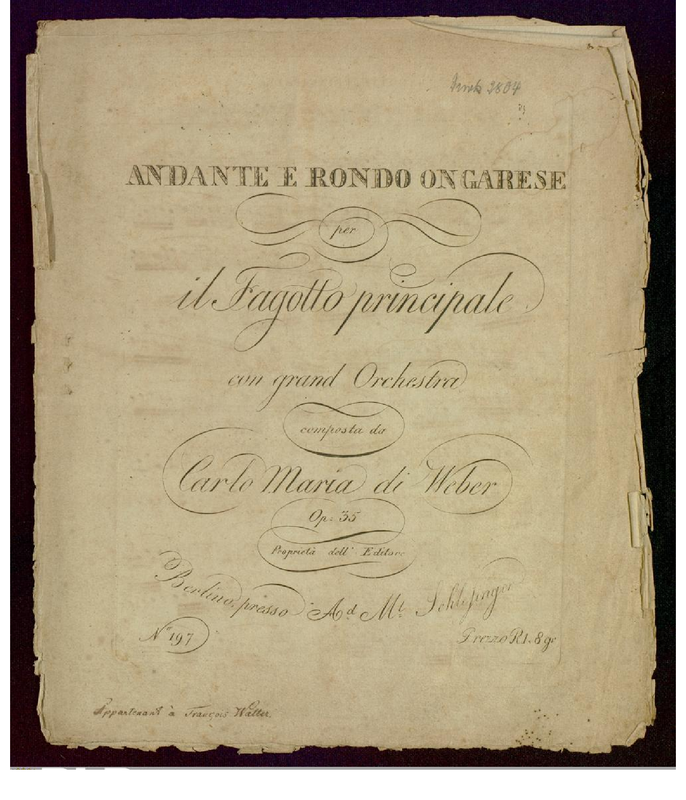 2804
ANDANTE E RONDO ONGARESE
per
il Fagotto principale
con grand Orchestra
composta da
Carlo Maria di Weber
Op. 35
Proprietà dell' Editore
Berlino, presso Ad. Mt. Schlesinger
No. 197
Prezzo R1. 8 gr
Appartenant à François Walter